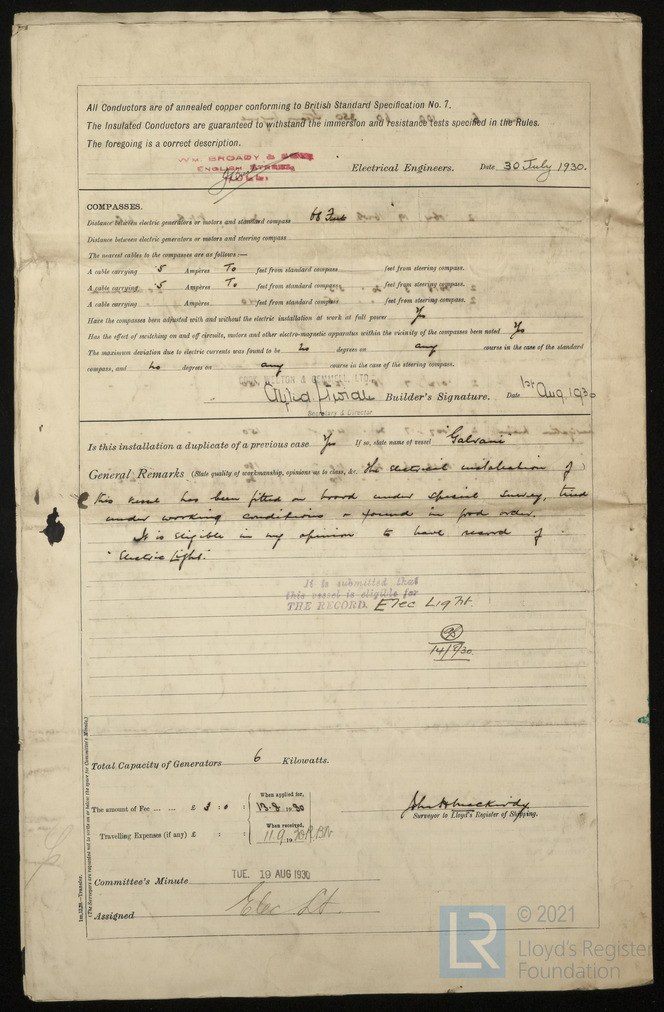 All Conductors are of annealed copper conforming to British Standard Specification No. 7.
The Insulated Conductors are guaranteed to withstand the immersion and resistance tests specified in the Rules.
The foregoing is a correct description.
WM. BROADY & SONS
ENGLISH STREET
HULL
Electrical Engineers. Date 30 July 1930.
COMPASSES.
Distance between electric generators or motors and standard compass 68 Feet
Distance between electric generators or motors and steering compass
The nearest cables to the compasses are as follows:—
A cable carrying 5 Ampères To feet from standard compass feet from steering compass.
A cable carrying 5 Ampères To feet from standard compass feet from steering compass.
A cable carrying Ampères feet from standard compass feet from steering compass.
Have the compasses been adjusted with and without the electric installation at work at full power Yes
Has the effect of switching on and off circuits, motors and other electro-magnetic apparatus within the vicinity of the compasses been noted Yes
The maximum deviation due to electric currents was found to be no degrees on any course in the case of the standard
compass, and no degrees on any course in the case of the steering compass.
COOK, WELTON & GEMMELL, LTD.
Builder's Signature. Date 1st Aug 1930
Secretary & Director
Is this installation a duplicate of a previous case Yes If so, state name of vessel Galvani
General Remarks (State quality of workmanship, opinions as to class, &c. The electrical installation of
this vessel has been fitted on board under special survey, tried
under working conditions & found in good order.
It is eligible in my opinion to have record of
"Electric Light."
It is submitted that
this vessel is eligible for
THE RECORD. Elec Light.
14/8/30.
Total Capacity of Generators 6 Kilowatts.
The amount of Fee ... ... £ 3 : 0 :
When applied for,
13.8.1930
Travelling Expenses (if any) £ : :
When received,
11.9.1930
John H Mackirdy
Surveyor to Lloyd's Register of Shipping.
Committee's Minute TUE. 19 AUG 1930
Assigned Elec Lt.
1m,12,28.—Transfer.
(The Surveyors are requested not to write on or below the space for Committee's Minute.)
LR
© 2021
Lloyd's Register
Foundation